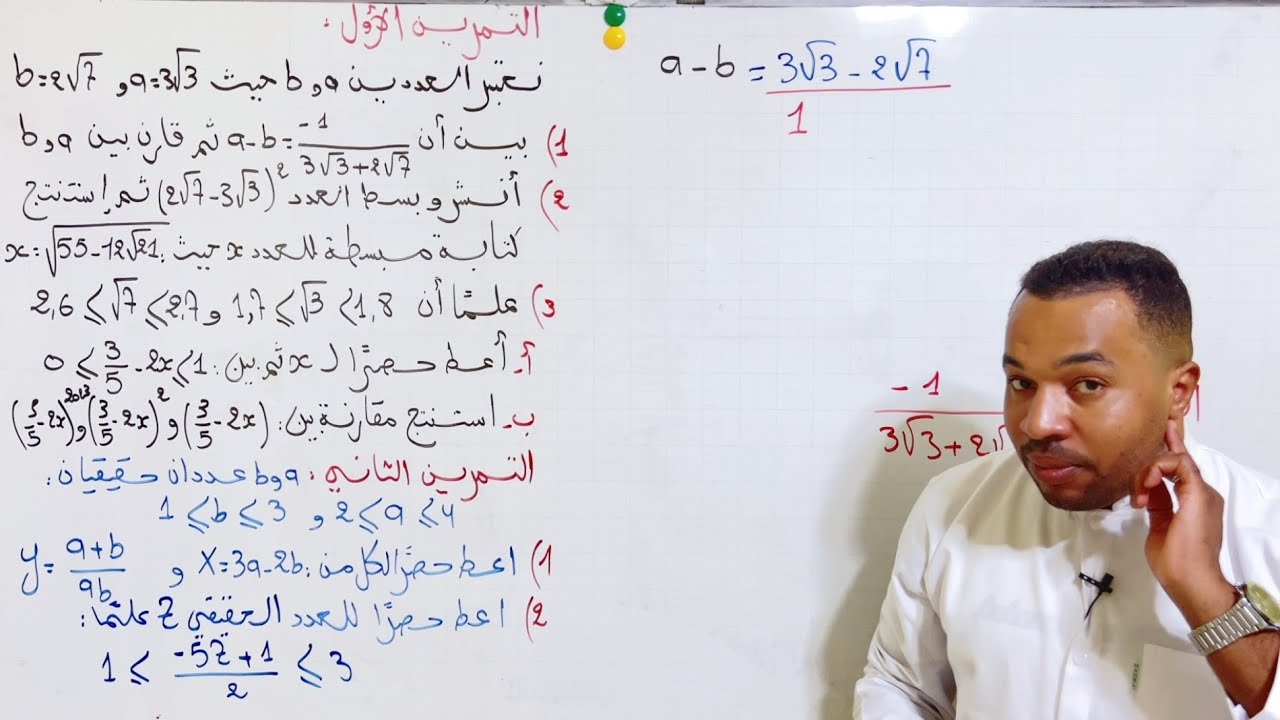 التمرين الأول:
نعتبر العددين a و b حيث a=3√3 و b=2√7
1) بين أن a-b = -1/(3√3+2√7) ثم قارن بين a و b
2) أنشر و بسط العدد (2√7-3√3)² ثم إستنتج
كتابة مبسطة للعدد x حيث: x=√(55-12√21)
3) علمًا أن 1,7 ⩽ √3 ⩽ 1,8 و 2,6 ⩽ √7 ⩽ 2,7
أ- أعط حصرًا لـ x ثم بين: 0 ⩽ 3/5 - 2x ⩽ 1
ب- استنتج مقارنة بين: (3/5 - 2x) و (3/5 - 2x)² و (3/5 - 2x)²⁰²³
التمرين الثاني: a و b عددان حقيقيان:
2 ⩽ a ⩽ 4 و 1 ⩽ b ⩽ 3
1) اعط حصرًا لكل من: X=3a-2b و y = (a+b)/(ab)
2) اعط حصرًا للعدد الحقيقي Z علمًا:
1 ⩽ (-5Z+1)/2 ⩽ 3
a-b = (3√3-2√7)/1
-1/(3√3+2√